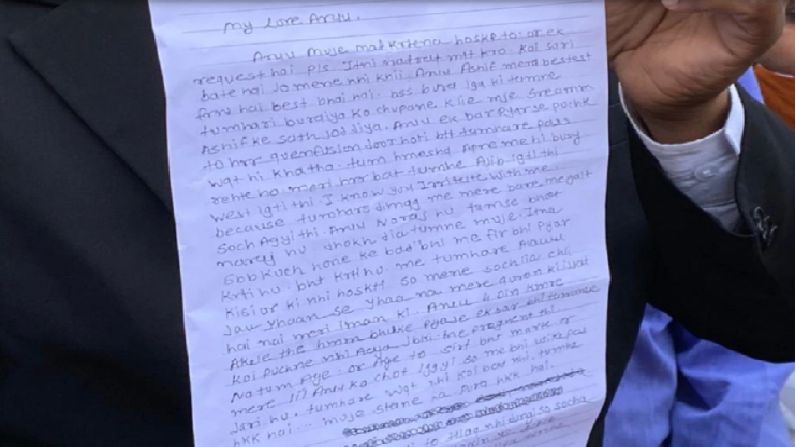 My Love Annu.
Annu muje maf krtena hoske to. or ek
request hai pls itni nafrat mat kro. Koi sari
bate hai Jo mene nhi khii. Annu Ashif mera bestest
frnd hai best bhai hai. bss bura lga ki tumne
tumhari buraiya ko chupane klie mje
Ashif ke sath Jod diya. Annu ek bar Pyar se
to hrr door hoti btt tumhare pass
wqt hi kha tha. tum hmesha Apne me hi busy
rehte ho meri hrr bat tumhe Ajib lgti thi
west lgti thi I know you Irritete with me
because tumhare dimag me mere bare me galt
Soch Agyi thi. Annu Naraj hu tumse bhot
hu dhokh dia tumne muje. Itna
Sbb kuch hone ke bad bhi me fir bhi Pyar
Krti hu. bht Krti hu. me tumhare Alawa
Kisi or ki nhi hoskti so mene soch lia
Jau Yhaan se Yhaa na mere quran
hai nai meri Iman ki. Annu 4 din kmre
Akele the hmm bhuke Pyase ek bar bhi tumne
koi puchne nhi Aaya Jbki me pregnent thi
Na tum Aye. or Aye to sirf bht mark
mere Annu ko chot lggyi so me bhi uske pas
Jari hu. tumhare wqt nhi koi bat nhi. tumhe
hkk hai... muje hkk hai.
to nhi so socha